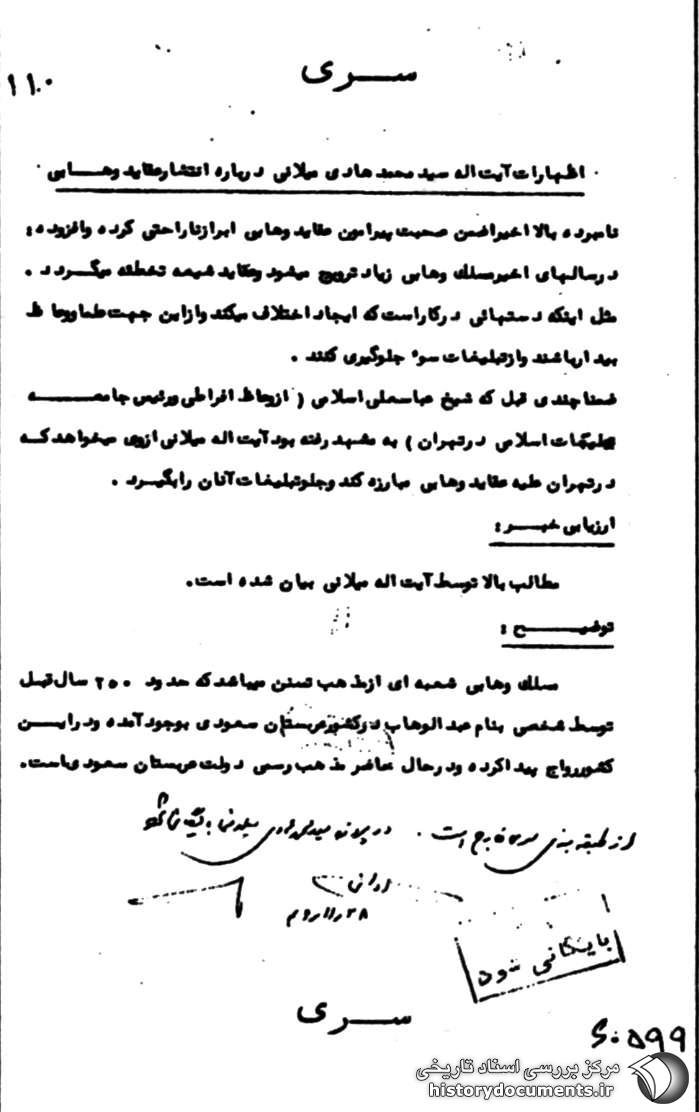 سری
۱۱۰
اظهارات آیت اله سید محمد هادی میلانی درباره انتشار عقاید وهابی
نامبرده بالا اخیرا ضمن صحبت پیرامون عقاید وهابی ابراز ناراحتی کرده و افزوده :
در سالهای اخیر مسلک وهابی زیاد ترویج میشود و عقاید شیعه تخطئه میگردد .
مثل اینکه دستهائی درکار است که ایجاد اختلاف میکند و از این جهت علما و وعاظ
بیدار باشند و از تبلیغات سوء جلوگیری کنند .
ضمنا چندی قبل که شیخ عباسعلی اسلامی ( از وعاظ افراطی و رئیس جامعه
تعلیمات اسلامی در تهران ) به مشهد رفته بود آیت اله میلانی از وی میخواهد که
در تهران علیه عقاید وهابی مبارزه کند و جلو تبلیغات آنان را بگیرد .
ارزیابی خبر :
مطالب بالا توسط آیت اله میلانی بیان شده است .
توضیح :
مسلک وهابی شعبه ای از مذهب تسنن میباشد که حدود ۲۵۰ سال قبل
توسط شخصی بنام عبدالوهاب در کشور عربستان سعودی بوجود آمده و در این
کشور رواج پیدا کرده و در حال حاضر مذهب رسمی دولت عربستان سعودی است .
از طبقه بندی خارج است . در پرونده
بایگانی شود
سری
مرکز بررسی اسناد تاریخی
historydocuments.ir